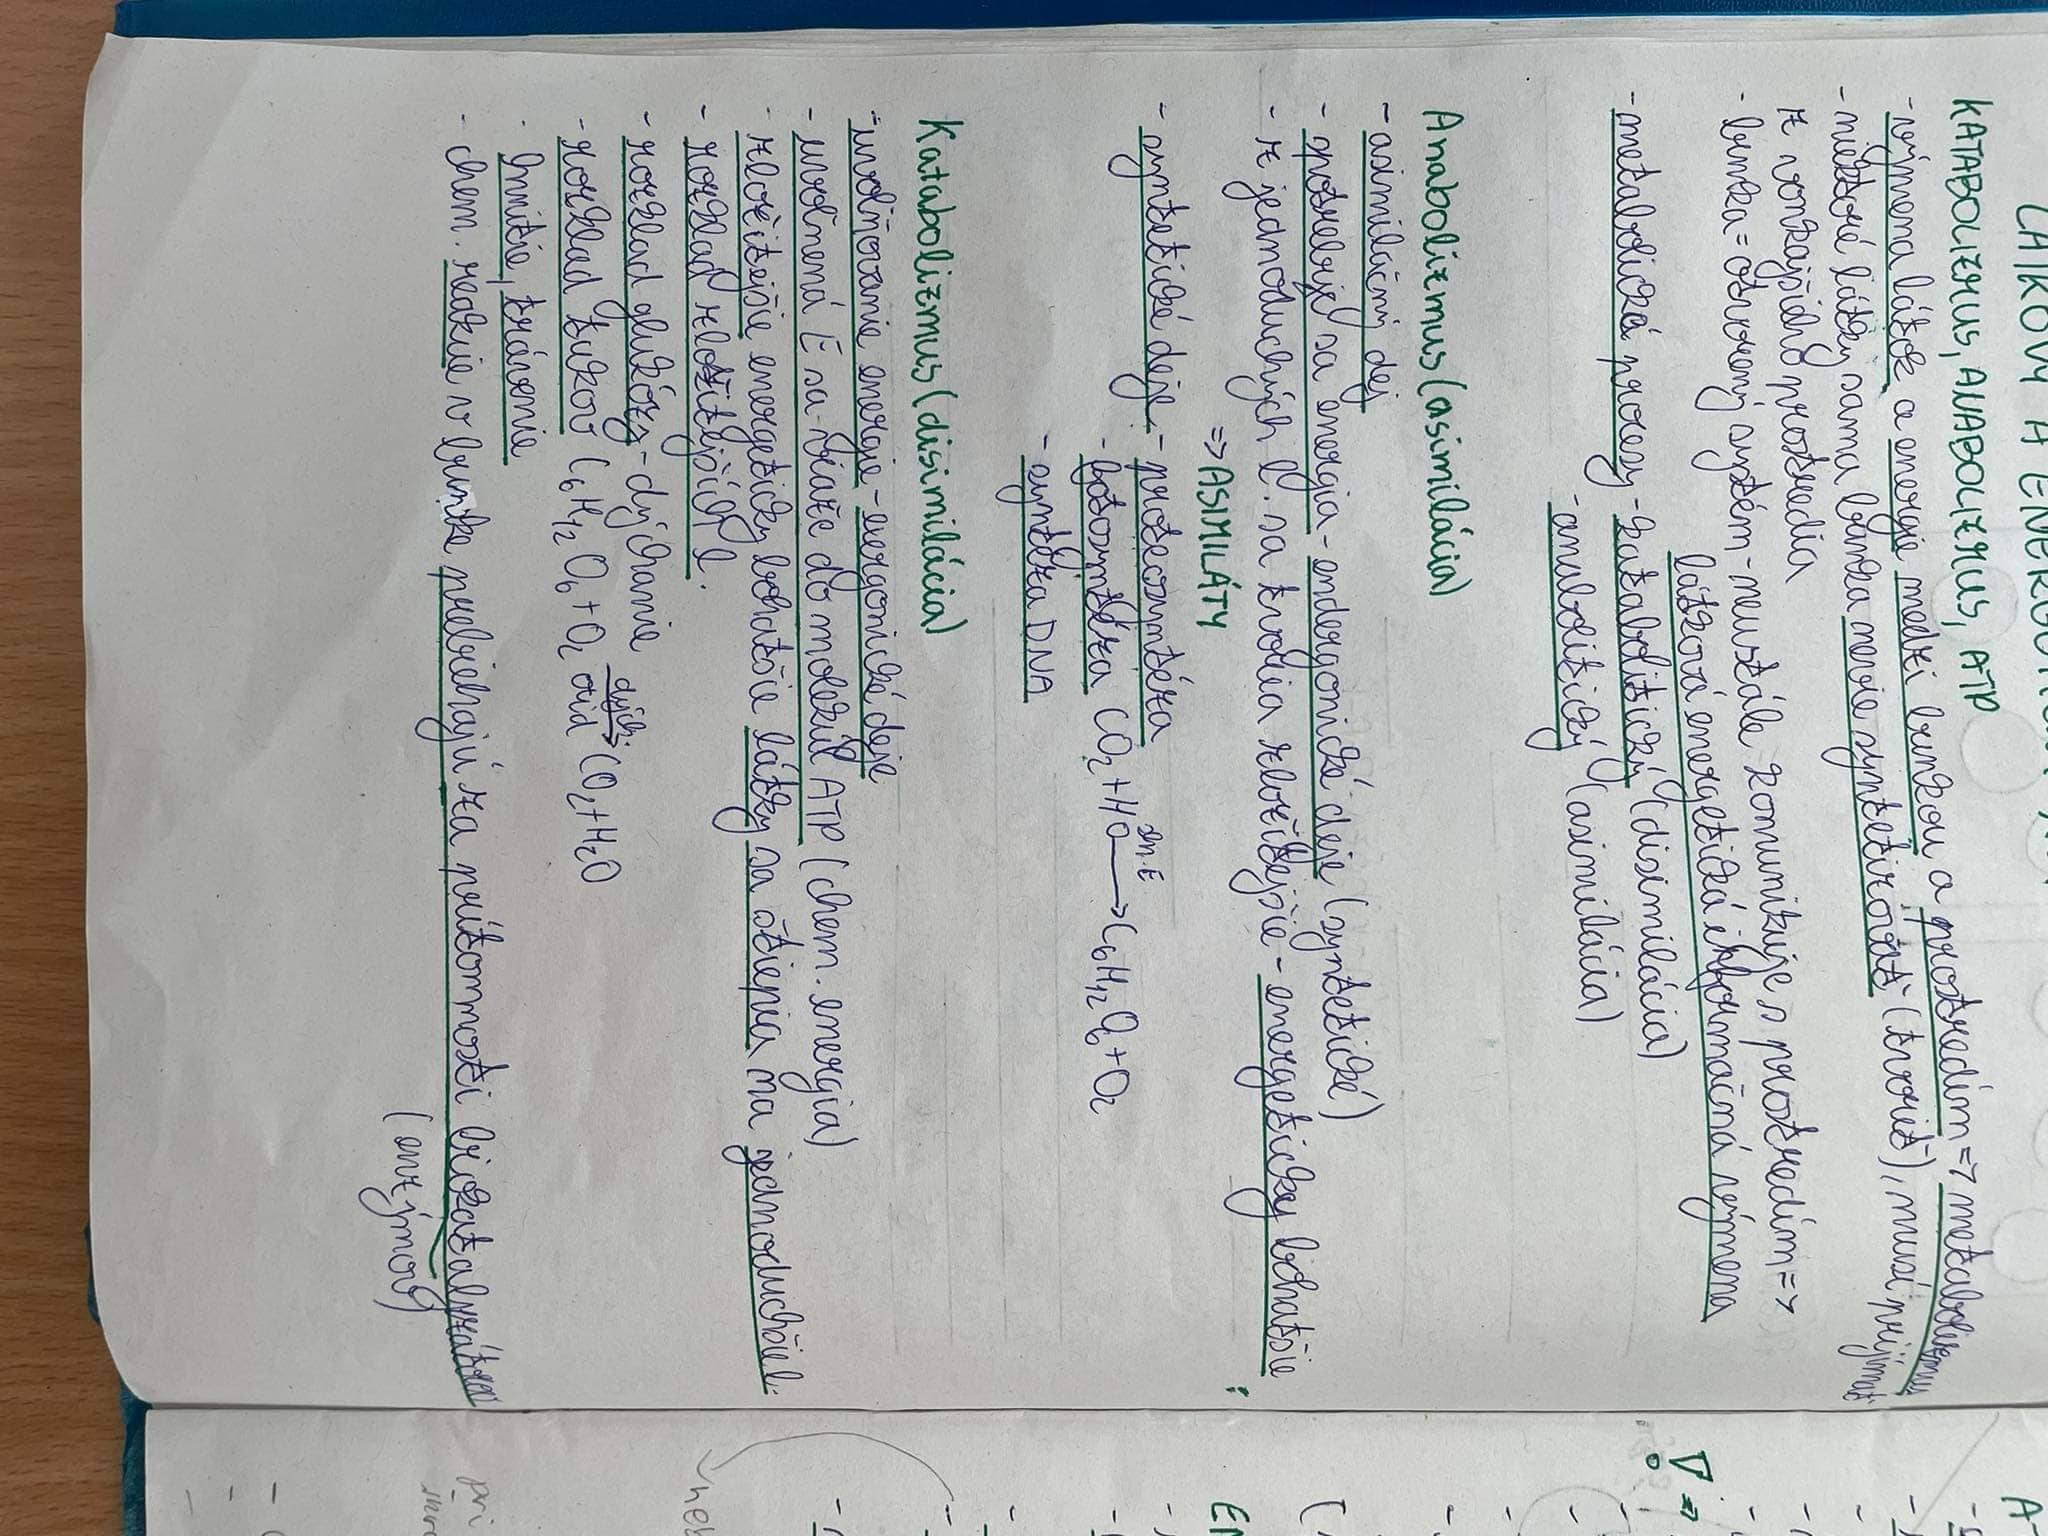 LÁTKOVÝ A ENERGETICKÝ
KATABOLIZMUS, ANABOLIZMUS, ATP
- výmena látok a energie medzi bunkou a prostredím => metabolizmus
- niektoré látky sama bunka nevie syntetizovať (tvoriť), musí prijímať
z vonkajšieho prostredia
- bunka = otvorený systém - neustále komunikuje s prostredím =>
látková energetická informačná výmena
- metabolické procesy - katabolitický (disimilácia)
- anabolitický (asimilácia)
Anabolizmus (asimilácia)
- asimilačný dej
- spotrebuje sa energia - endergonické deje (syntetické)
- z jednoduchých l. sa tvoria zložitejšie - energeticky bohatšie
=> ASIMILÁTY
- syntetické deje - proteosyntéza
- fotosyntéza CO₂ + HO sln. E ⟶ C₆H₁₂O₆ + O₂
- syntéza DNA
Katabolizmus (disimilácia)
- uvoľňovanie energie - exergonické deje
- uvoľnená E sa viaže do molekúl ATP (chem. energia)
- zložitejšie energeticky bohatšie látky sa štiepia na jednoduchšie l.
- rozklad zložitejších l.
- rozklad glukózy - dýchanie
- rozklad tukov C₆H₁₂O₆ + O₂ dých. → CO₂ + H₂O
- hnitie, trávenie
- chem. reakcie v bunke prebiehajú za prítomnosti biokatalyzátorov
(enzýmov)